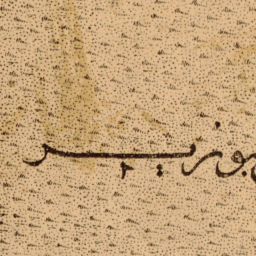 بوزير